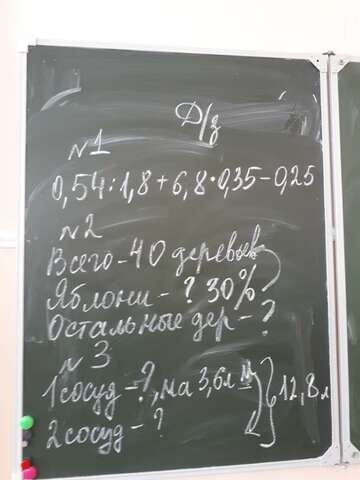 Д/з
№1
0,54:1,8+6,8·0,35-0,25
№2
Всего-40 деревьев
Яблони-? 30%
Остальные дер-?
№3
1 сосуд-?, на 3,6л м 12,8л
2 сосуд-?